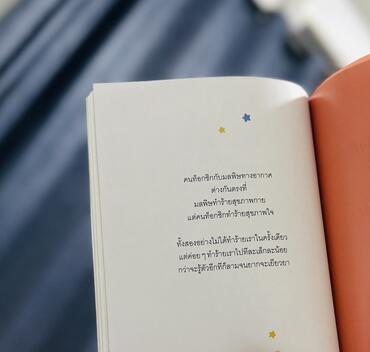 คนท็อกซิกกับมลพิษทางอากาศ
ต่างกันตรงที่
มลพิษทำร้ายสุขภาพกาย
แต่คนท็อกซิกทำร้ายสุขภาพใจ
ทั้งสองอย่างไม่ได้ทำร้ายเราในครั้งเดียว
แต่ค่อย ๆ ทำร้ายเราไปทีละเล็กละน้อย
กว่าจะรู้ตัวอีกทีก็ลามจนยากจะเยียวยา